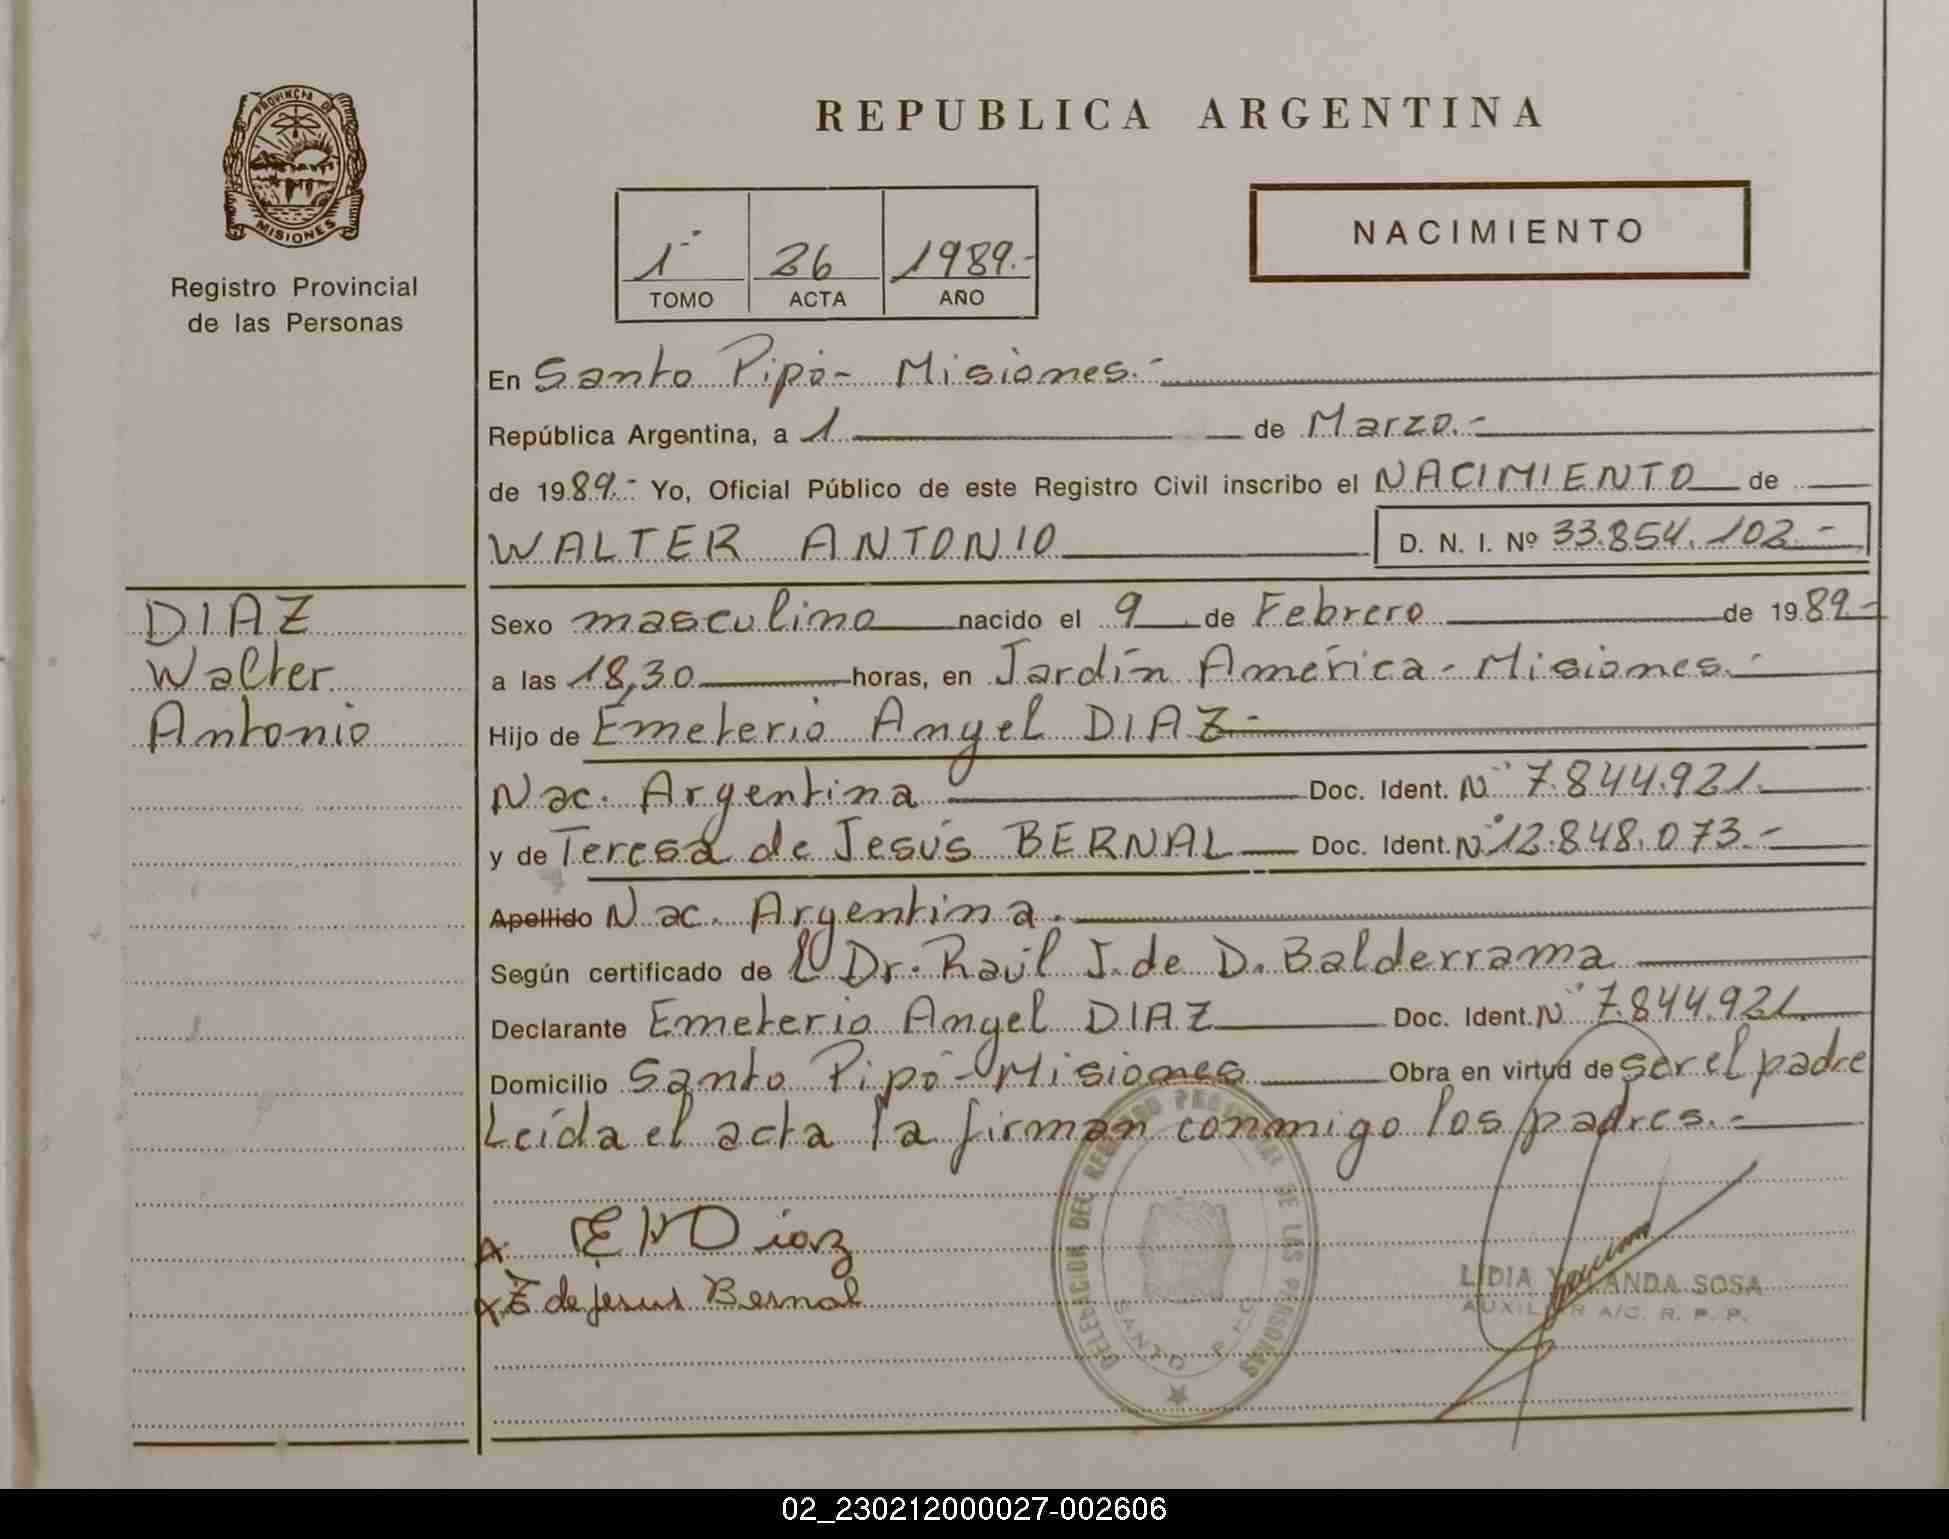 PROVINCIA DE
MISIONES
Registro Provincial
de las Personas
REPUBLICA ARGENTINA
1° 26 1989.-
TOMO ACTA AÑO
NACIMIENTO
En Santo Pipó- Misiones.-
República Argentina, a 1 de Marzo.-
de 1989.- Yo, Oficial Público de este Registro Civil inscribo el NACIMIENTO de
WALTER ANTONIO D. N. I. Nº 33.854.102.-
DIAZ
Walter
Antonio
Sexo masculino nacido el 9 de Febrero de 1989.-
a las 18,30 horas, en Jardín América - Misiones.-
Hijo de Emeterio Angel DIAZ-
Nac. Argentina Doc. Ident. N° 7.844.921.
y de Teresa de Jesús BERNAL Doc. Ident. N° 12.848.073.-
Apellido Nac. Argentina.
Según certificado de Dr. Raúl J. de D. Balderrama
Declarante Emeterio Angel DIAZ Doc. Ident. N° 7.844.921.
Domicilio Santo Pipó - Misiones Obra en virtud de ser el padre
Leída el acta la firman conmigo los padres.-
DELEGACION DEL REGISTRO PROVINCIAL DE LAS PERSONAS
SANTO PIPO
Diaz
de Jesus Bernal
LIDIA YOLANDA SOSA
AUXILIAR A/C. R. P. P.
02_230212000027-002606